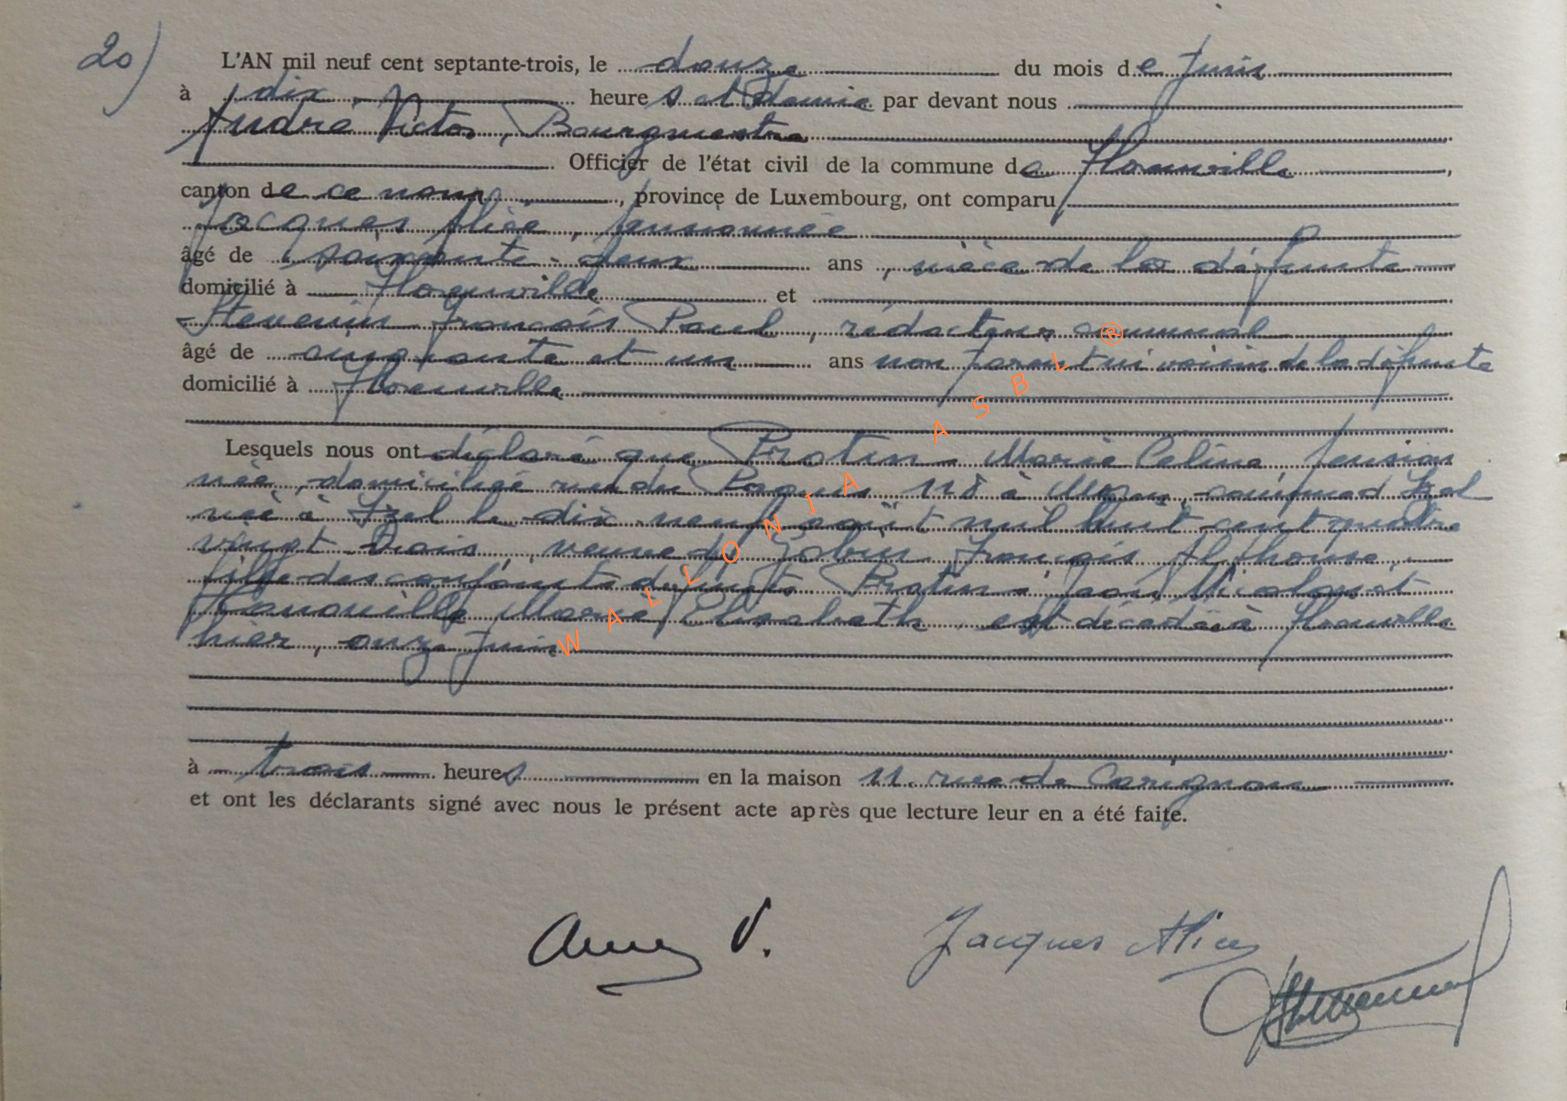 20)
L'AN mil neuf cent septante-trois, le douze du mois de juin
à dix heures et demie par devant nous
André Victor, Bourgmestre
Officier de l'état civil de la commune de Florenville
canton de ce nom, province de Luxembourg, ont comparu
Jacques Alice, pensionnée
âgé de soixante-deux ans, nièce de la défunte
domicilié à Florenville et
Stevenin François Paul, rédacteur communal
âgé de cinquante et un ans non parent ni voisin de la défunte
domicilié à Florenville
Lesquels nous ont déclaré que Protin - Marie Celina pension
née, domiciliée rue du 118 à Moyen, commune d'Izel
née à Izel le dix-neuf août mil huit cent quatre
vingt trois, veuve de Jobin François Alphonse,
fille des conjoints défunts Protin - Jean Nicolas et
Marie Elisabeth, est décédée à Florenville
hier, onze juin
à trois heures en la maison 11 rue de Carignan
et ont les déclarants signé avec nous le présent acte après que lecture leur en a été faite.
Jacques Alice
WALLONIA ASBL ®